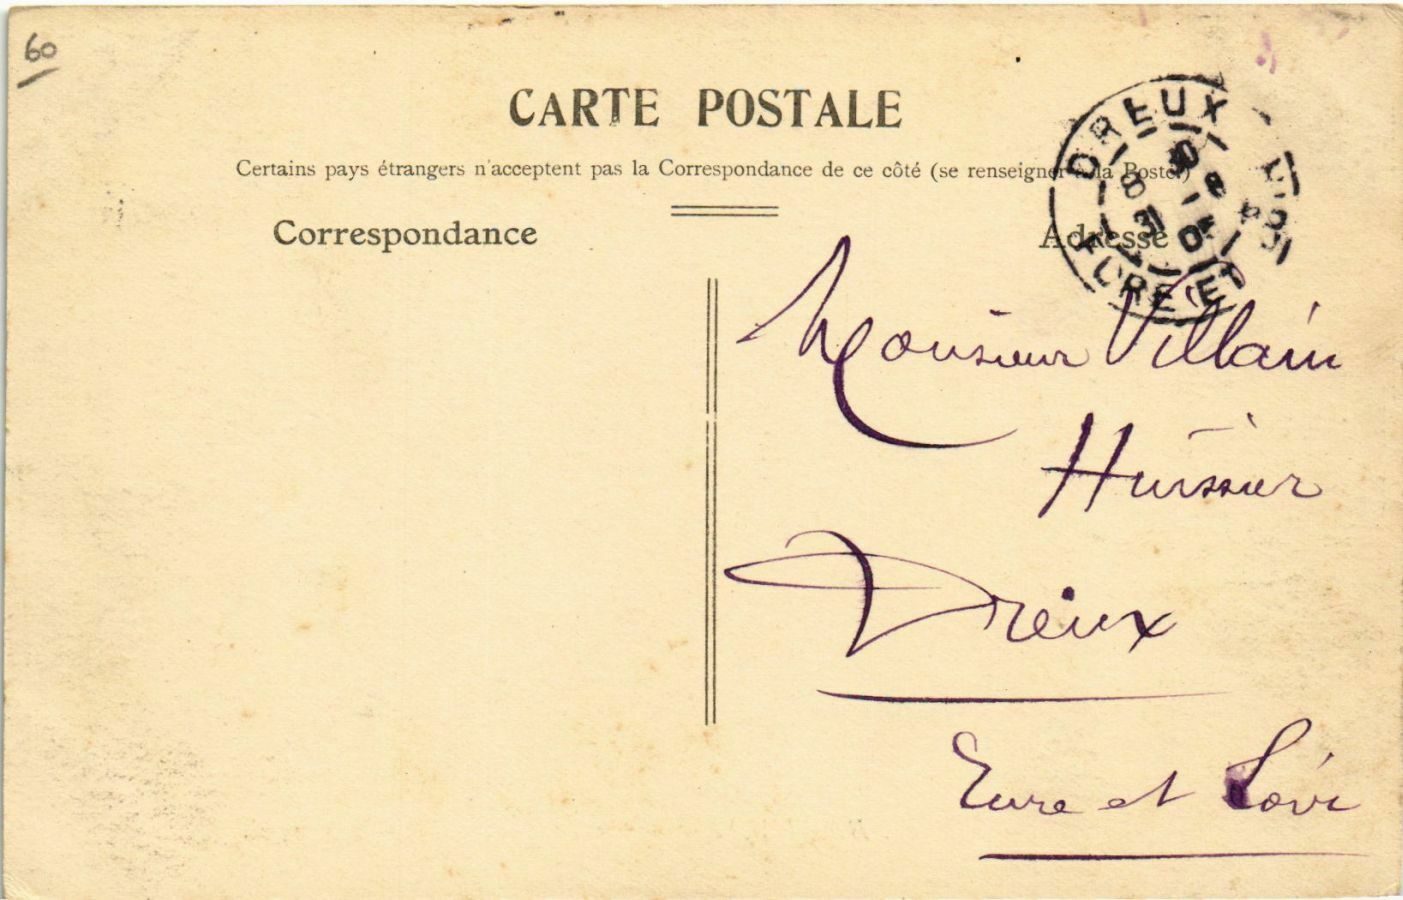 60
CARTE POSTALE
Certains pays étrangers n'acceptent pas la Correspondance de ce côté (se renseigner à la Poste)
Correspondance
Adresse
DREUX
EURE ET
Monsieur Villain
Huissier
Dreux
Eure et Loir